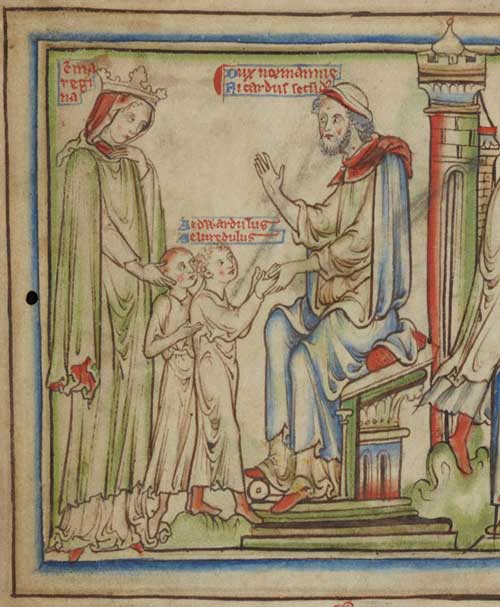 Ema
regi
na
Dux normannie
Ricardus
Aedwardulus
Aeluredulus